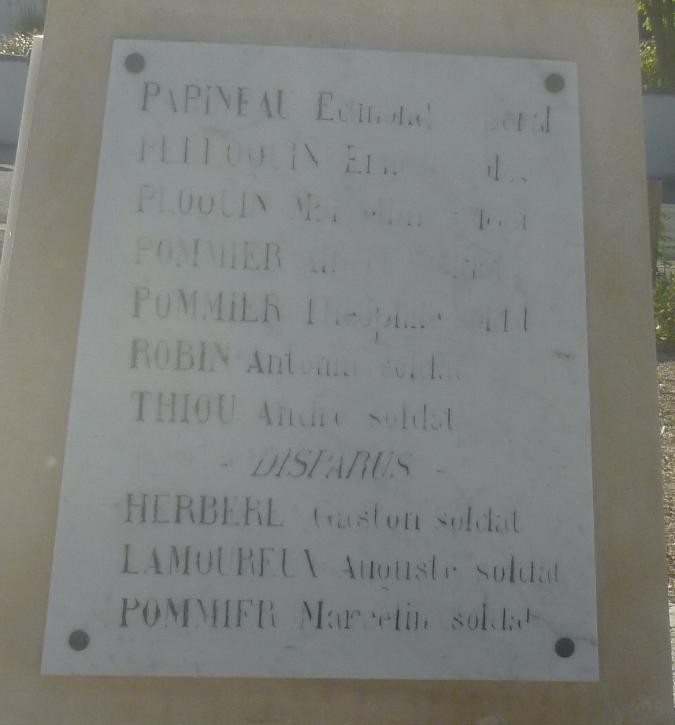 PAPINEAU Edmond
PELLOQUIN
PLOQUIN
POMMIER
POMMIER Théophile soldat
ROBIN Antonin soldat
THIOU André soldat
- DISPARUS -
HERBERL Gaston soldat
LAMOUREUX Auguste soldat
POMMIER Marcelin soldat